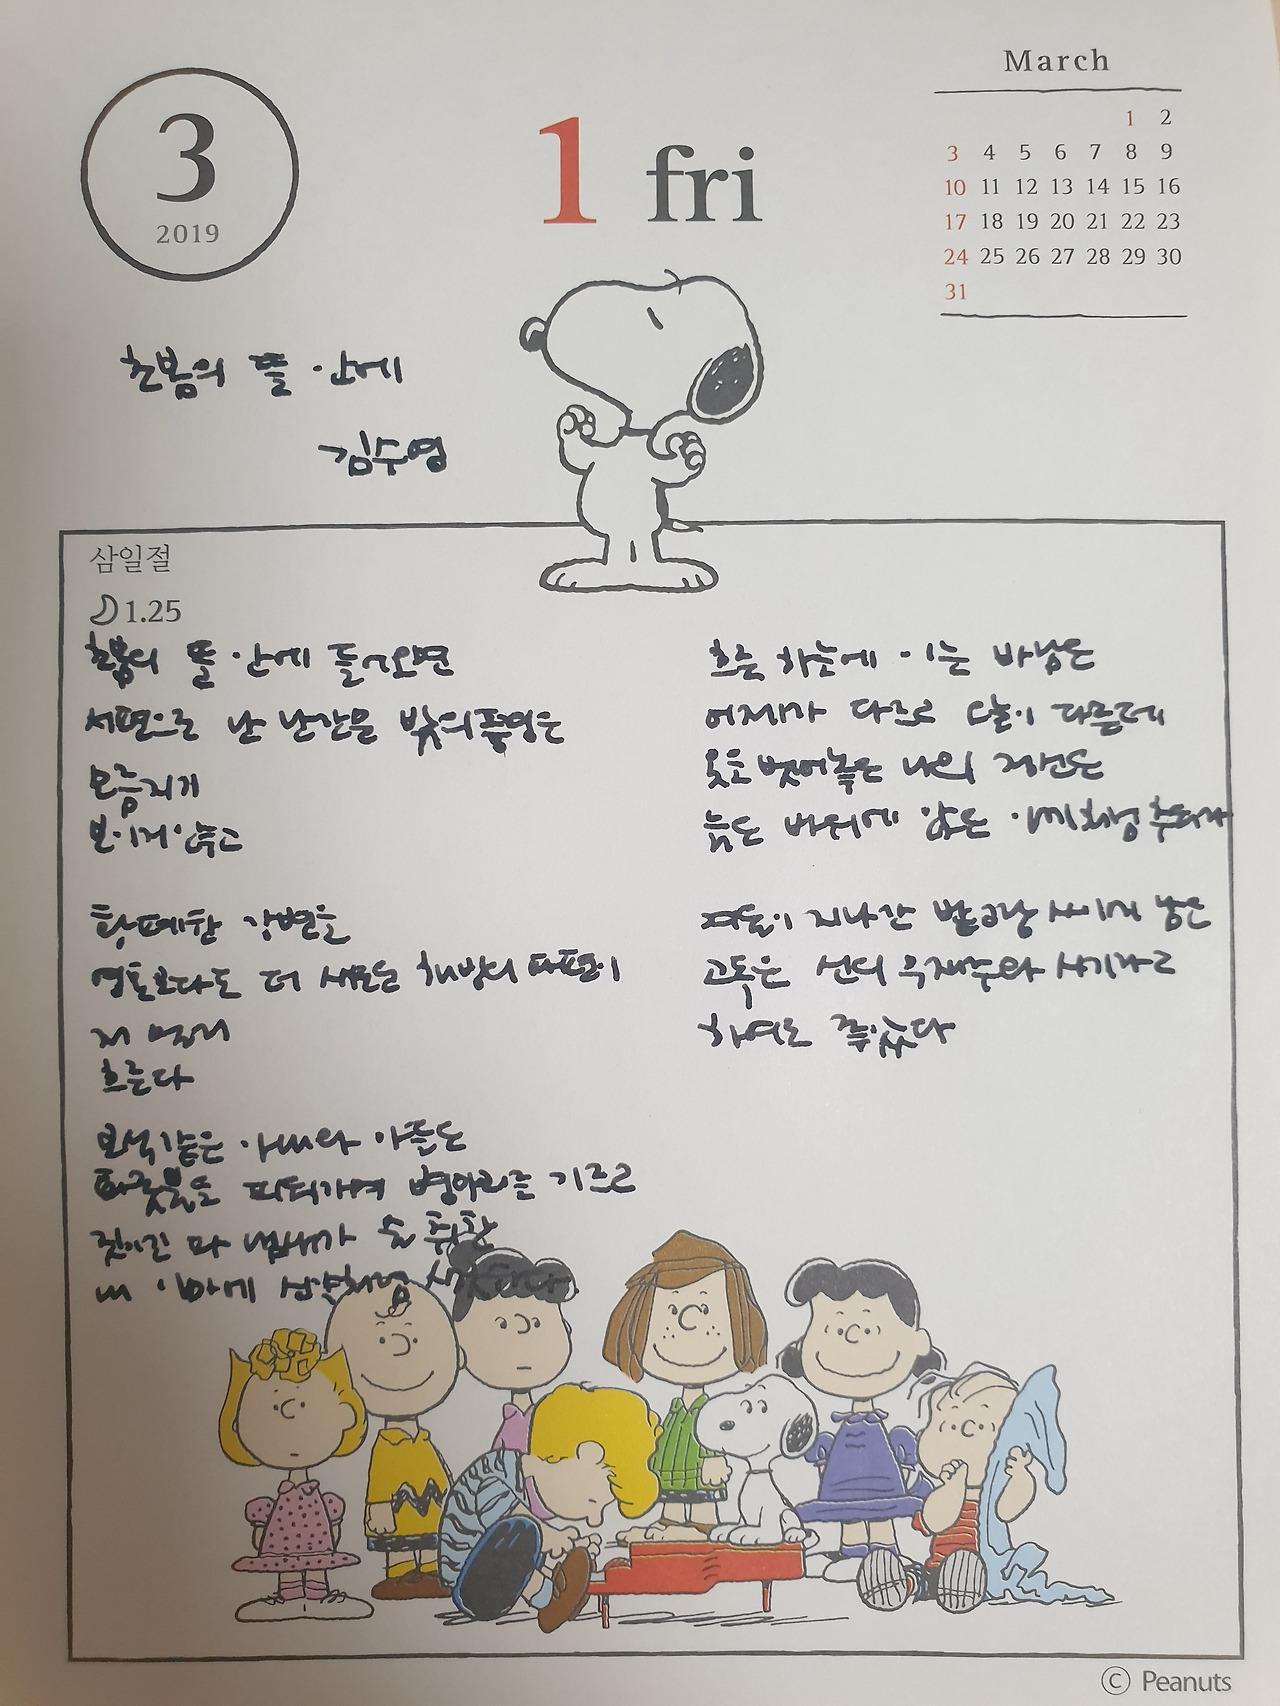 3
2019
1 fri
March
1 2
3 4 5 6 7 8 9
10 11 12 13 14 15 16
17 18 19 20 21 22 23
24 25 26 27 28 29 30
31
초봄의 뜰 안에
김수영
삼일절
1.25
초봄의 뜰 안에 들어오면
서편으로 난 난간문 밖의 풍경은
모름지기
보이지 않고
황폐한 강변을
영혼보다도 더 새로운 해빙의 파편이
저 멀리
흐른다
보석같은 아내와 아들은
화롯불을 피워가며 병아리를 기르고
짓이긴 파 냄새가 술 취한
내 이마에 신약처럼 생긋하다
흐린 하늘에 이는 바람은
어제가 다르고 오늘이 다른데
옷을 벗어놓은 나의 정신은
늙은 바위에 앉은 이끼처럼 추워라
겨울이 지나간 밭고랑 사이에 남은
고독은 신의 무재주와 사기라고
하여도 좋았다
© Peanuts